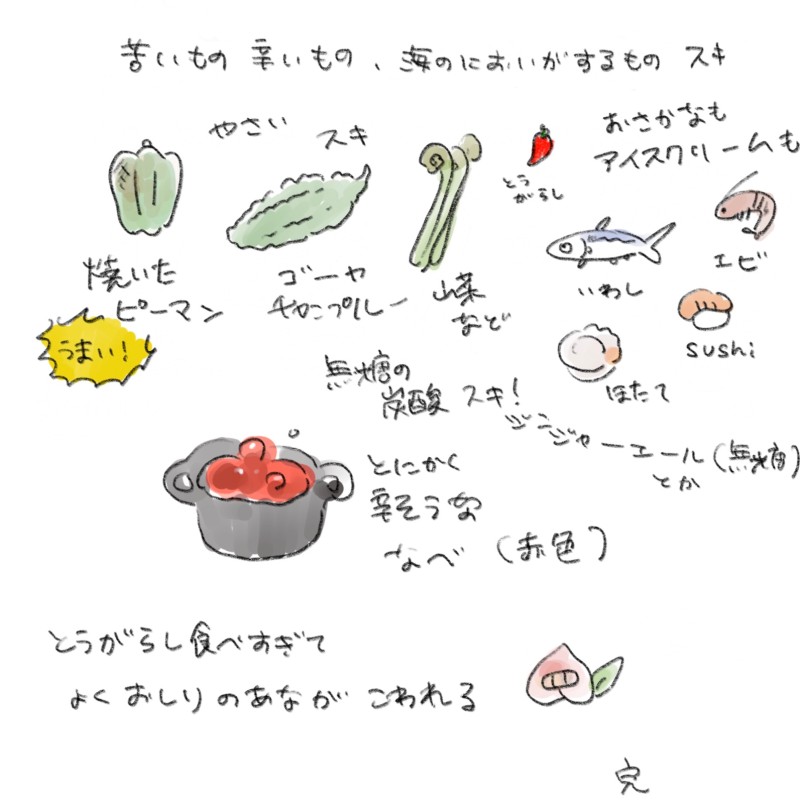 苦いもの 辛いもの、海のにおいがするもの スキ
やさい スキ
おさかなも
アイスクリームも
とう
がらし
焼いた
ピーマン
うまい!
ゴーヤ
チャンプルー
山菜
など
いわし
エビ
sushi
ほたて
無糖の
炭酸 スキ!
ジンジャーエール(無糖)
とか
とにかく
辛そうな
なべ (赤色)
とうがらし食べすぎて
よく おしりのあなが こわれる
完